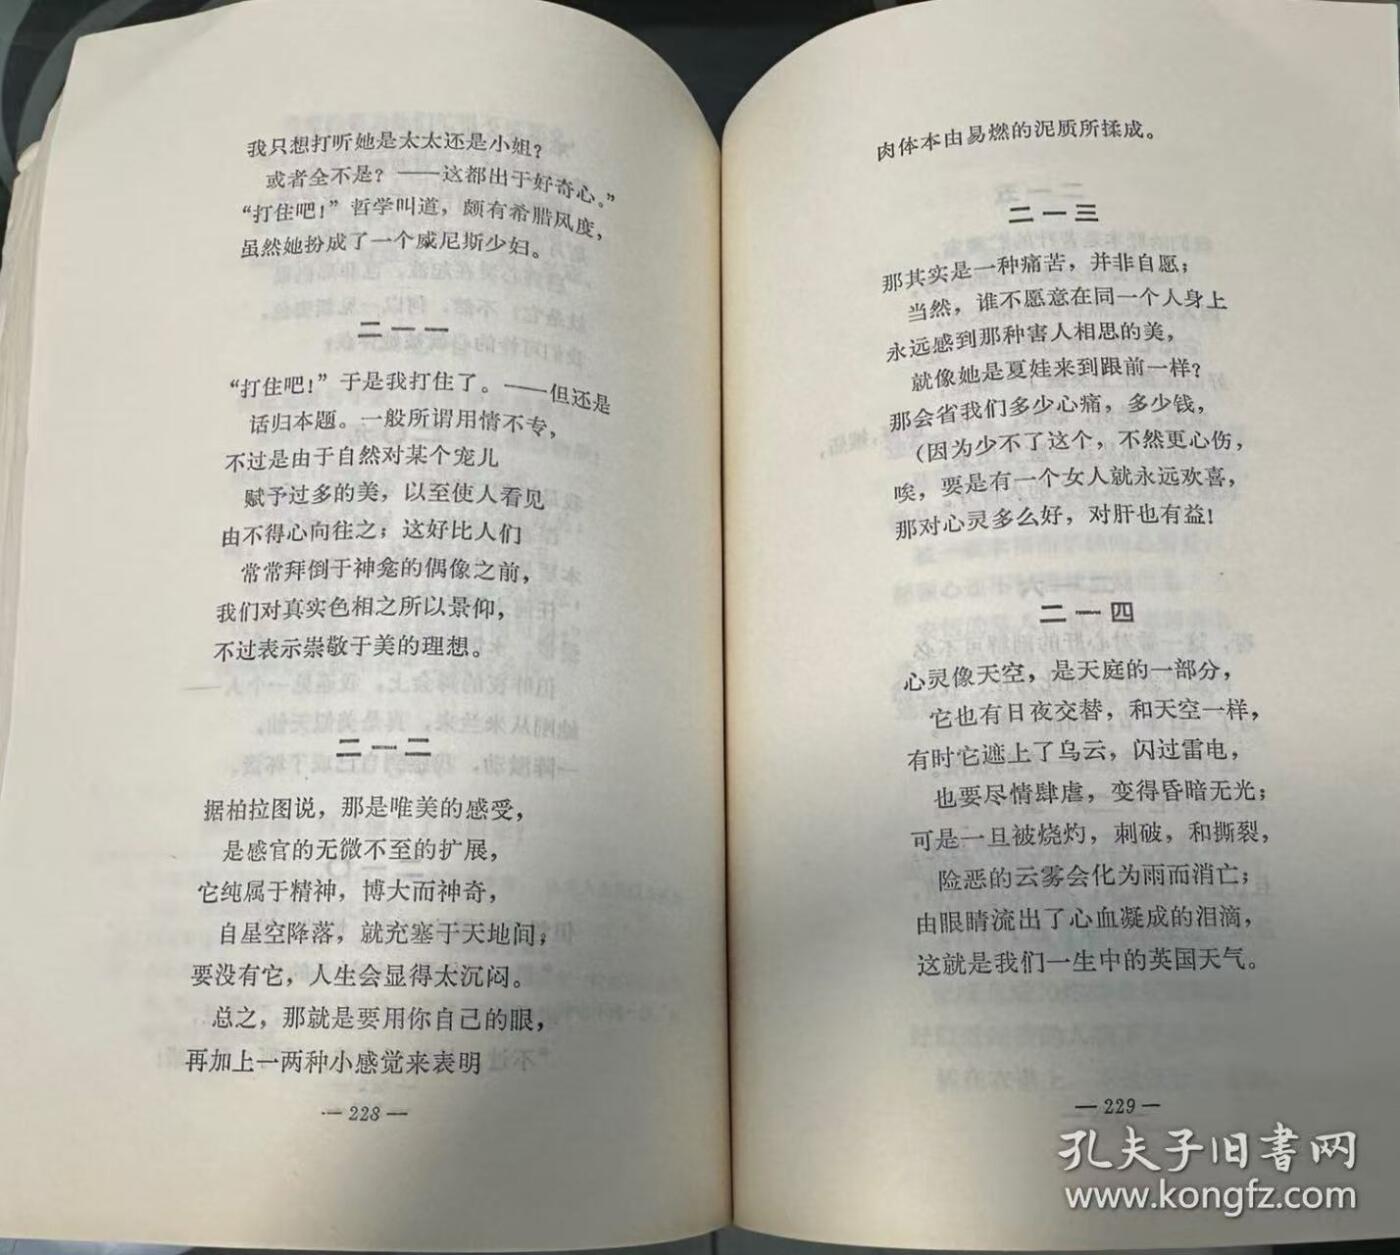 我只想打听她是太太还是小姐？
或者全不是？——这都出于好奇心。”
“打住吧！”哲学叫道，颇有希腊风度，
虽然她扮成了一个威尼斯少妇。
二一一
“打住吧！”于是我打住了。——但还是
话归本题。一般所谓用情不专，
不过是由于自然对某个宠儿
赋予过多的美，以至使人看见
由不得心向往之；这好比人们
常常拜倒于神龛的偶像之前，
我们对真实色相之所以景仰，
不过表示崇敬于美的理想。
二一二
据柏拉图说，那是唯美的感受，
是感官的无微不至的扩展，
它纯属于精神，博大而神奇，
自星空降落，就充塞于天地间；
要没有它，人生会显得太沉闷。
总之，那就是要用你自己的眼，
再加上一两种小感觉来表明
— 228 —
肉体本由易燃的泥质所揉成。
二一三
那其实是一种痛苦，并非自愿；
当然，谁不愿意在同一个人身上
永远感到那种害人相思的美，
就像她是夏娃来到跟前一样？
那会省我们多少心痛，多少钱，
（因为少不了这个，不然更心伤，
唉，要是有一个女人就永远欢喜，
那对心灵多么好，对肝也有益！
二一四
心灵像天空，是天庭的一部分，
它也有日夜交替，和天空一样，
有时它遮上了乌云，闪过雷电，
也要尽情肆虐，变得昏暗无光；
可是一旦被烧灼，刺破，和撕裂，
险恶的云雾会化为雨而消亡；
由眼睛流出了心血凝成的泪滴，
这就是我们一生中的英国天气。
— 229 —
孔夫子旧书网
www.kongfz.com